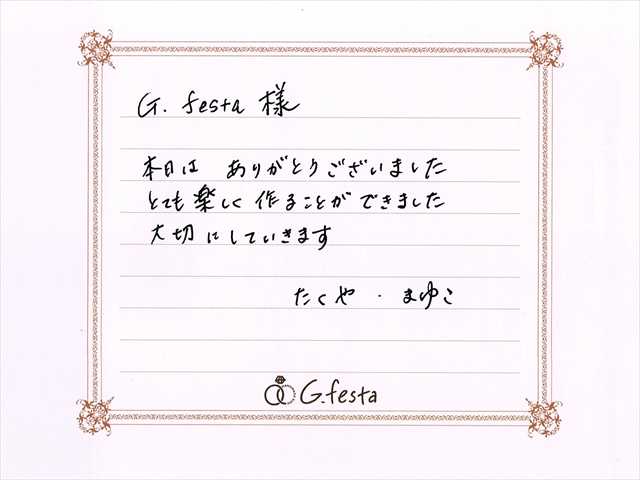 G. festa 様
本日は ありがとうございました
とても楽しく作ることができました
大切にしていきます
たくや ・ まゆこ
G.festa